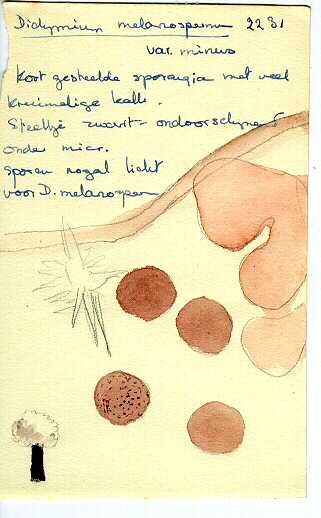 Didymium melanospermum 2231
var. minus
Kort gesteelde sporangia met veel
kruimelige kalk.
Steeltje zwart - ondoorschijnend
onder micr.
sporen nogal licht
voor D. melanosperm